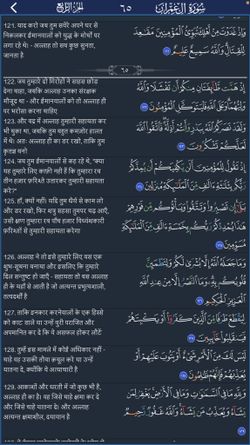 الجزء الرابع
٦٥
سورة آل عمران
121. याद करो जब तुम सवेरे अपने घर से
निकलकर ईमानवालों को युद्ध के मोर्चों पर
लगा रहे थे। - अल्लाह तो सब कुछ सुनता,
जानता है
وَإِذْ غَدَوْتَ مِنْ أَهْلِكَ تُبَوِّئُ الْمُؤْمِنِينَ مَقَاعِدَ
لِلْقِتَالِ وَاللَّهُ سَمِيعٌ عَلِيمٌ ١٢١
٦٥
122. जब तुम्हारे दो गिरोहों ने साहस छोड़
देना चाहा, जबकि अल्लाह उनका संरक्षक
मौजूद था - और ईमानवालों को तो अल्लाह ही
पर भरोसा करना चाहिए
إِذْ هَمَّتْ طَائِفَتَانِ مِنْكُمْ أَنْ تَفْشَلَا وَاللَّهُ
وَلِيُّهُمَا وَعَلَى اللَّهِ فَلْيَتَوَكَّلِ الْمُؤْمِنُونَ ١٢٢
123. और बद्र में अल्लाह तुम्हारी सहायता कर
भी चुका था, जबकि तुम बहुत कमज़ोर हालत
में थे। अतः अल्लाह ही का डर रखो, ताकि तुम
कृतज्ञ बनो
وَلَقَدْ نَصَرَكُمُ اللَّهُ بِبَدْرٍ وَأَنْتُمْ أَذِلَّةٌ فَاتَّقُوا اللَّهَ
لَعَلَّكُمْ تَشْكُرُونَ ١٢٣
124. जब तुम ईमानवालों से कह रहे थे, "क्या
यह तुम्हारे लिए काफ़ी नहीं है कि तुम्हारा रब
तीन हज़ार फ़रिश्ते उतारकर तुम्हारी सहायता
करे?"
إِذْ تَقُولُ لِلْمُؤْمِنِينَ أَلَنْ يَكْفِيَكُمْ أَنْ يُمِدَّكُمْ
رَبُّكُمْ بِثَلَاثَةِ آلَافٍ مِنَ الْمَلَائِكَةِ مُنْزَلِينَ ١٢٤
125. हाँ, क्यों नहीं। यदि तुम धैर्य से काम लो
और डर रखो, फिर शत्रु सहसा तुमपर चढ़ आएँ,
उसी क्षण तुम्हारा रब पाँच हज़ार विध्वंशकारी
फ़रिश्तों से तुम्हारी सहायता करेगा
بَلَى إِنْ تَصْبِرُوا وَتَتَّقُوا وَيَأْتُوكُمْ مِنْ فَوْرِهِمْ
هَذَا يُمْدِدْكُمْ رَبُّكُمْ بِخَمْسَةِ آلَافٍ مِنَ الْمَلَائِكَةِ
مُسَوِّمِينَ ١٢٥
126. अल्लाह ने तो इसे तुम्हारे लिए बस एक
शुभ-सूचना बनाया और इसलिए कि तुम्हारे
दिल सन्तुष्ट हो जाएँ - सहायता तो बस अल्लाह
ही के यहाँ से आती है जो अत्यन्त प्रभुत्वशाली,
तत्वदर्शी है
وَمَا جَعَلَهُ اللَّهُ إِلَّا بُشْرَى لَكُمْ وَلِتَطْمَئِنَّ
قُلُوبُكُمْ بِهِ وَمَا النَّصْرُ إِلَّا مِنْ عِنْدِ اللَّهِ
الْعَزِيزِ الْحَكِيمِ ١٢٦
127. ताकि इनकार करनेवालों के एक हिस्से
को काट डाले या उन्हें बुरी पराजित और
अपमानित कर दे कि वे असफल होकर लौटें
لِيَقْطَعَ طَرَفًا مِنَ الَّذِينَ كَفَرُوا أَوْ يَكْبِتَهُمْ
فَيَنْقَلِبُوا خَائِبِينَ ١٢٧
128. तुम्हें इस मामले में कोई अधिकार नहीं -
चाहे वह उसकी तौबा क़बूल करे या उन्हें
यातना दे, क्योंकि वे अत्याचारी है
لَيْسَ لَكَ مِنَ الْأَمْرِ شَيْءٌ أَوْ يَتُوبَ عَلَيْهِمْ أَوْ
يُعَذِّبَهُمْ فَإِنَّهُمْ ظَالِمُونَ ١٢٨
129. आकाशों और धरती में जो कुछ भी है,
अल्लाह ही का है। वह जिसे चाहे क्षमा कर दे
और जिसे चाहे यातना दे। और अल्लाह
अत्यन्त क्षमाशील, दयावान है
وَلِلَّهِ مَا فِي السَّمَاوَاتِ وَمَا فِي الْأَرْضِ يَغْفِرُ لِمَنْ
يَشَاءُ وَيُعَذِّبُ مَنْ يَشَاءُ وَاللَّهُ غَفُورٌ رَحِيمٌ
١٢٩